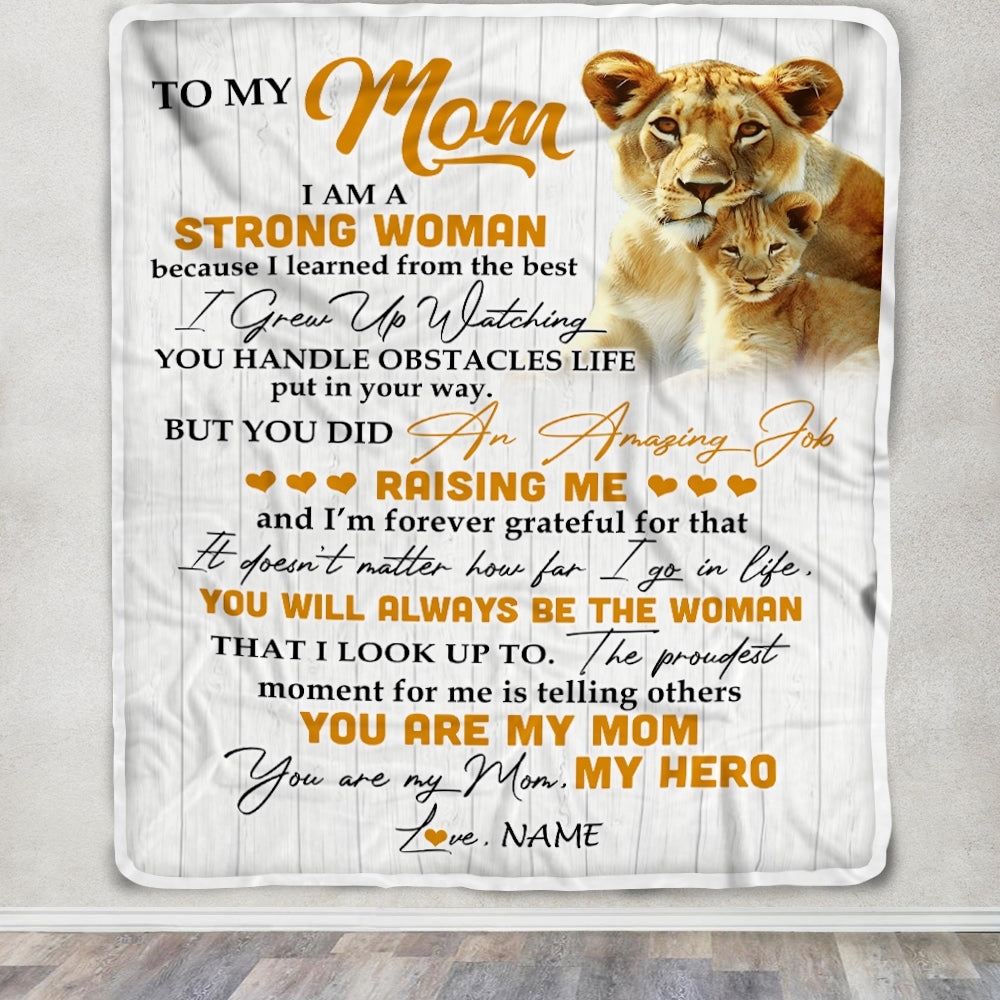 TO MY Mom
I AM A
STRONG WOMAN
because I learned from the best
I Grew Up Watching
YOU HANDLE OBSTACLES LIFE
put in your way.
BUT YOU DID An Amazing Job
RAISING ME
and I'm forever grateful for that
It doesn't matter how far I go in life,
YOU WILL ALWAYS BE THE WOMAN
THAT I LOOK UP TO. The proudest
moment for me is telling others
YOU ARE MY MOM
You are my Mom, MY HERO
Love, NAME